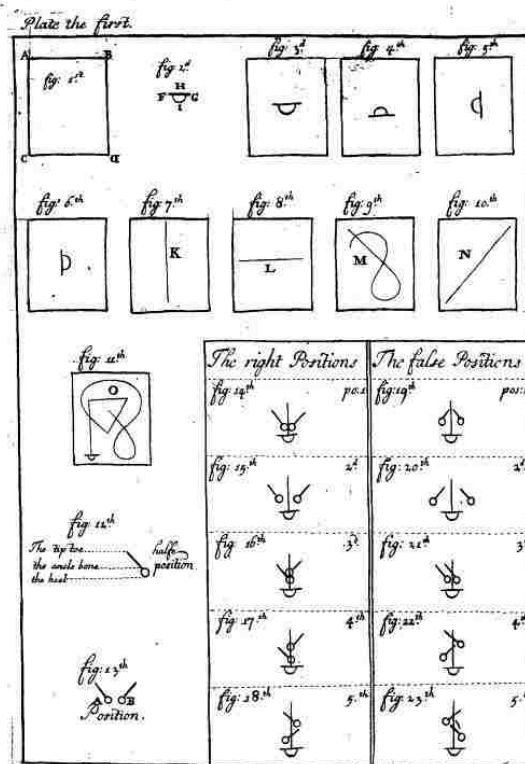 Plate the first.
A B
fig: 1.st
C D
fig 2.d
H
F G
I
fig: 3.d
fig: 4.th
fig: 5.th
fig: 6.th
fig: 7.th
K
fig: 8.th
L
fig: 9.th
M
fig: 10.th
N
fig: 11.th
O
fig: 12.th
The tip toe
the ancle bone
the heel
halfe
position
fig: 13.th
A B
Position.
The right Positions
fig: 14.th pos:1
fig: 15.th 2.d
fig: 16.th 3.d
fig: 17.th 4.th
fig: 18.th 5.th
The false Positions
fig: 19.th pos:
fig: 20.th 2.d
fig: 21.th 3
fig: 22.th 4.th
fig: 23.th 5.